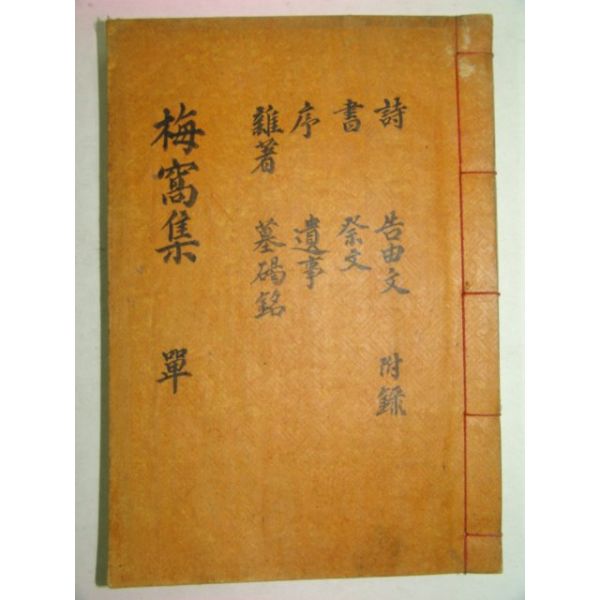 詩 告由文 附錄
書 祭文
序 遺事
雜著 墓碣銘
梅窩集 單